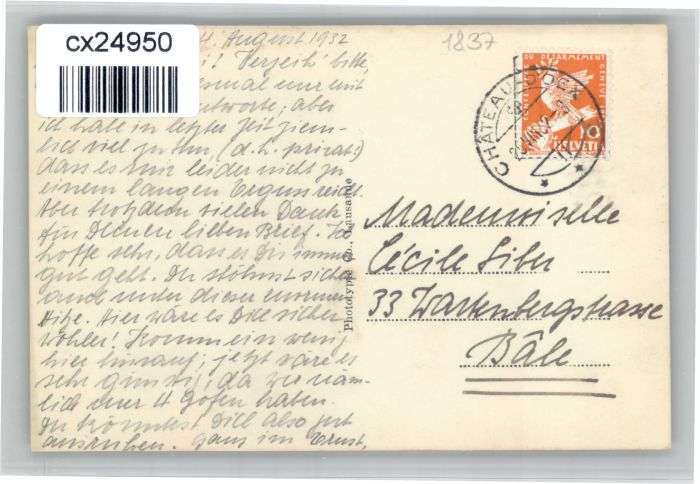 cx24950
1837
4. August 1932
Verzeih' bitte,
nur mit
antworte, aber
ich habe in letzter Zeit ziem-
lich viel zu tun, (d.h. privat!)
dass es mir leider nicht zu
einem langen Erguss reicht.
Aber trotzdem vielen Dank
für Deinen lieben Brief. Ich
hoffe sehr, dass es Dir immer
gut geht. Du stöhnst sicher
auch unter dieser enormen
Hitze. Hier wäre es Dir sicher
wöhler! Komm ein wenig
hier hinauf; jetzt wäre es
sehr günstig, da wir näm-
lich nur 4 Gofen haben.
Du könntest Dich also gut
ausruhen. Ganz im Ernst,
Phototypie Co., Lausanne
CHÂTEAU-D'OEX
DU DÉSARMEMENT
10
HELVETIA
Mademoiselle
Cécile
33 Wartenbergstrasse
Bâle